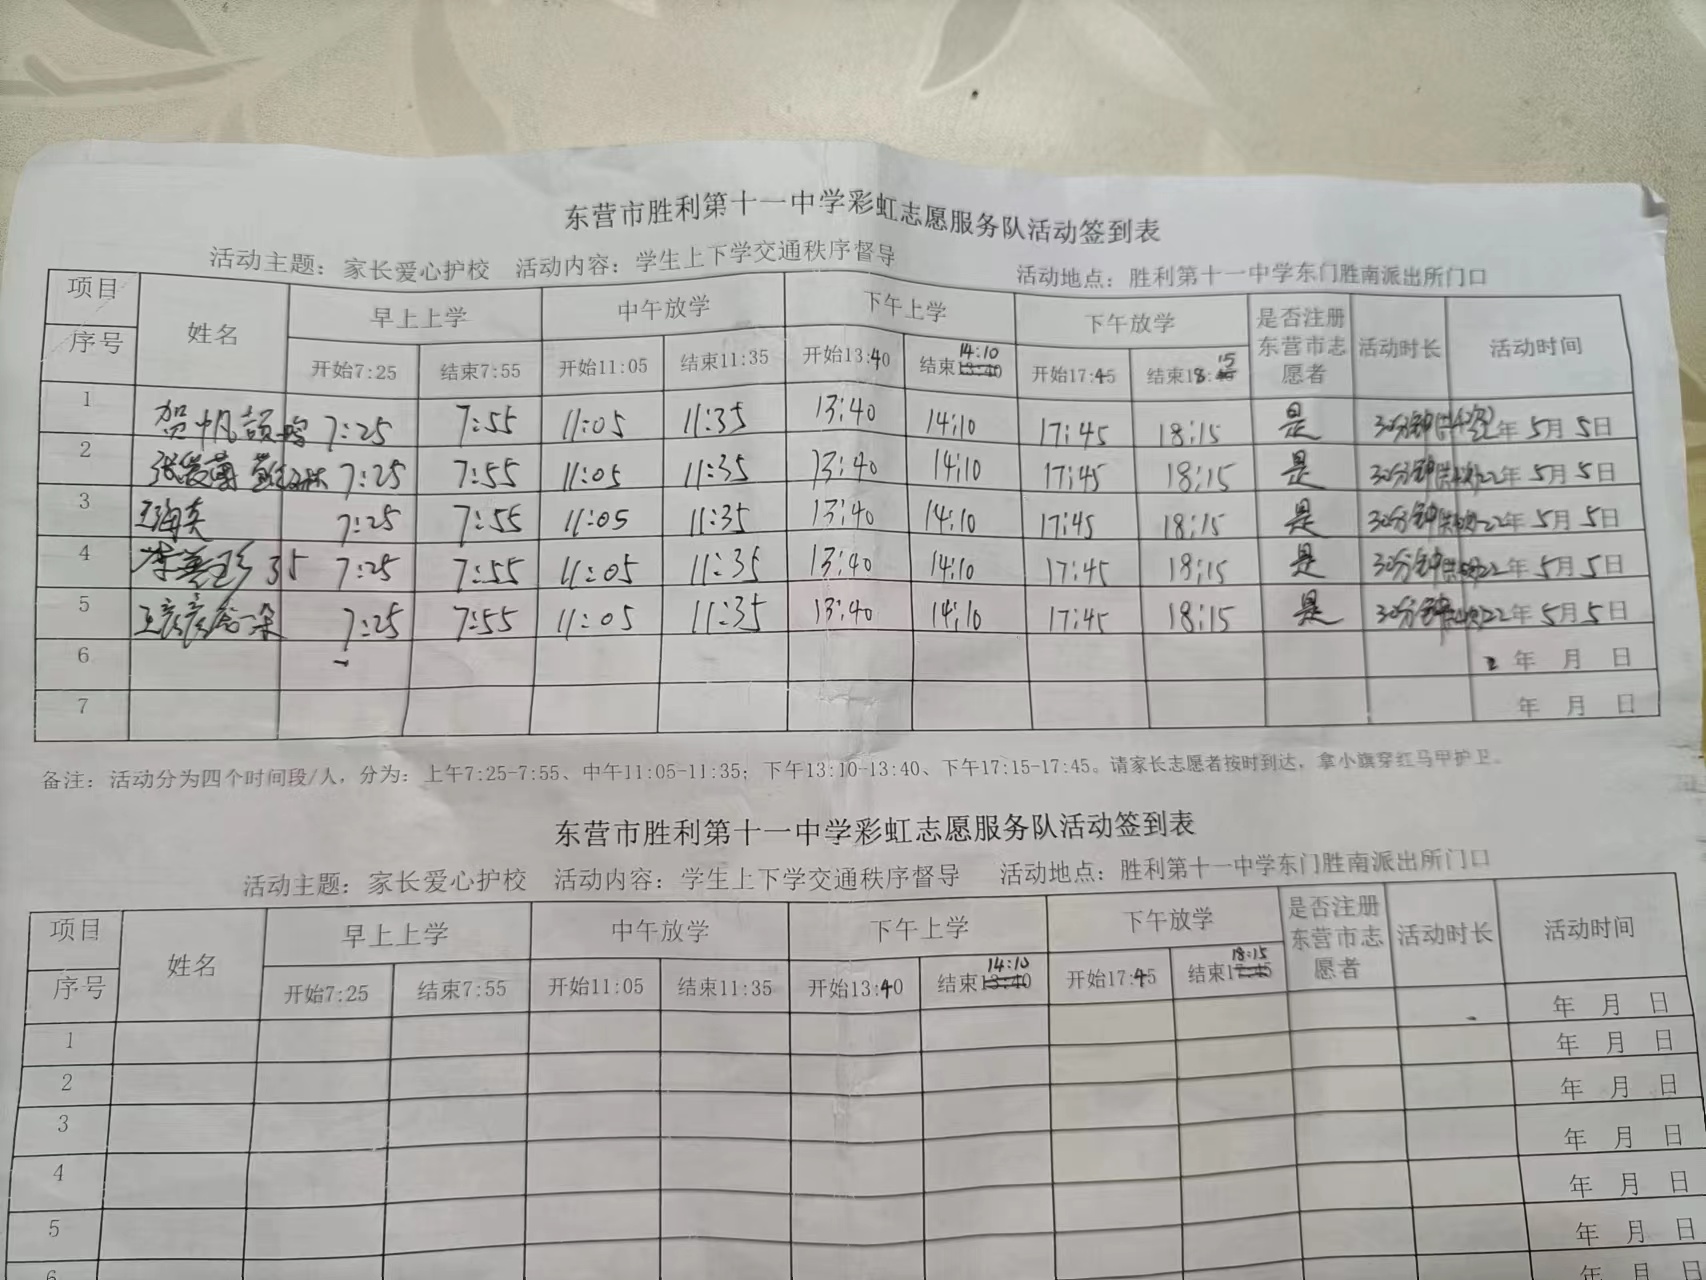 东营市胜利第十一中学彩虹志愿服务队活动签到表
活动主题：家长爱心护校 活动内容：学生上下学交通秩序督导 活动地点：胜利第十一中学东门胜南派出所门口
项目 姓名 早上上学 中午放学 下午上学 下午放学 是否注册东营市志愿者 活动时长 活动时间
序号 开始7:25 结束7:55 开始11:05 结束11:35 开始13:40 结束14:10 开始17:45 结束18:15
1 7:25 7:55 11:05 11:35 13:40 14:10 17:45 18:15 是 30分钟 年 5月 5日
2 7:25 7:55 11:05 11:35 13:40 14:10 17:45 18:15 是 30分钟 22年 5月 5日
3 7:25 7:55 11:05 11:35 13:40 14:10 17:45 18:15 是 30分钟 22年 5月 5日
4 35 7:25 7:55 11:05 11:35 13:40 14:10 17:45 18:15 是 30分钟 22年 5月 5日
5 7:25 7:55 11:05 11:35 13:40 14:10 17:45 18:15 是 30分钟 22年 5月 5日
6 年 月 日
7 年 月 日
备注：活动分为四个时间段/人，分为：上午7:25-7:55、中午11:05-11:35；下午13:10-13:40、下午17:15-17:45。请家长志愿者按时到达，拿小旗穿红马甲护卫。
东营市胜利第十一中学彩虹志愿服务队活动签到表
活动主题：家长爱心护校 活动内容：学生上下学交通秩序督导 活动地点：胜利第十一中学东门胜南派出所门口
项目 姓名 早上上学 中午放学 下午上学 下午放学 是否注册东营市志愿者 活动时长 活动时间
序号 开始7:25 结束7:55 开始11:05 结束11:35 开始13:40 结束14:10 开始17:45 结束18:15
年 月 日
1 年 月 日
2 年 月 日
3 年 月 日
4 年 月 日
5 年 月 日
6 年 月 日